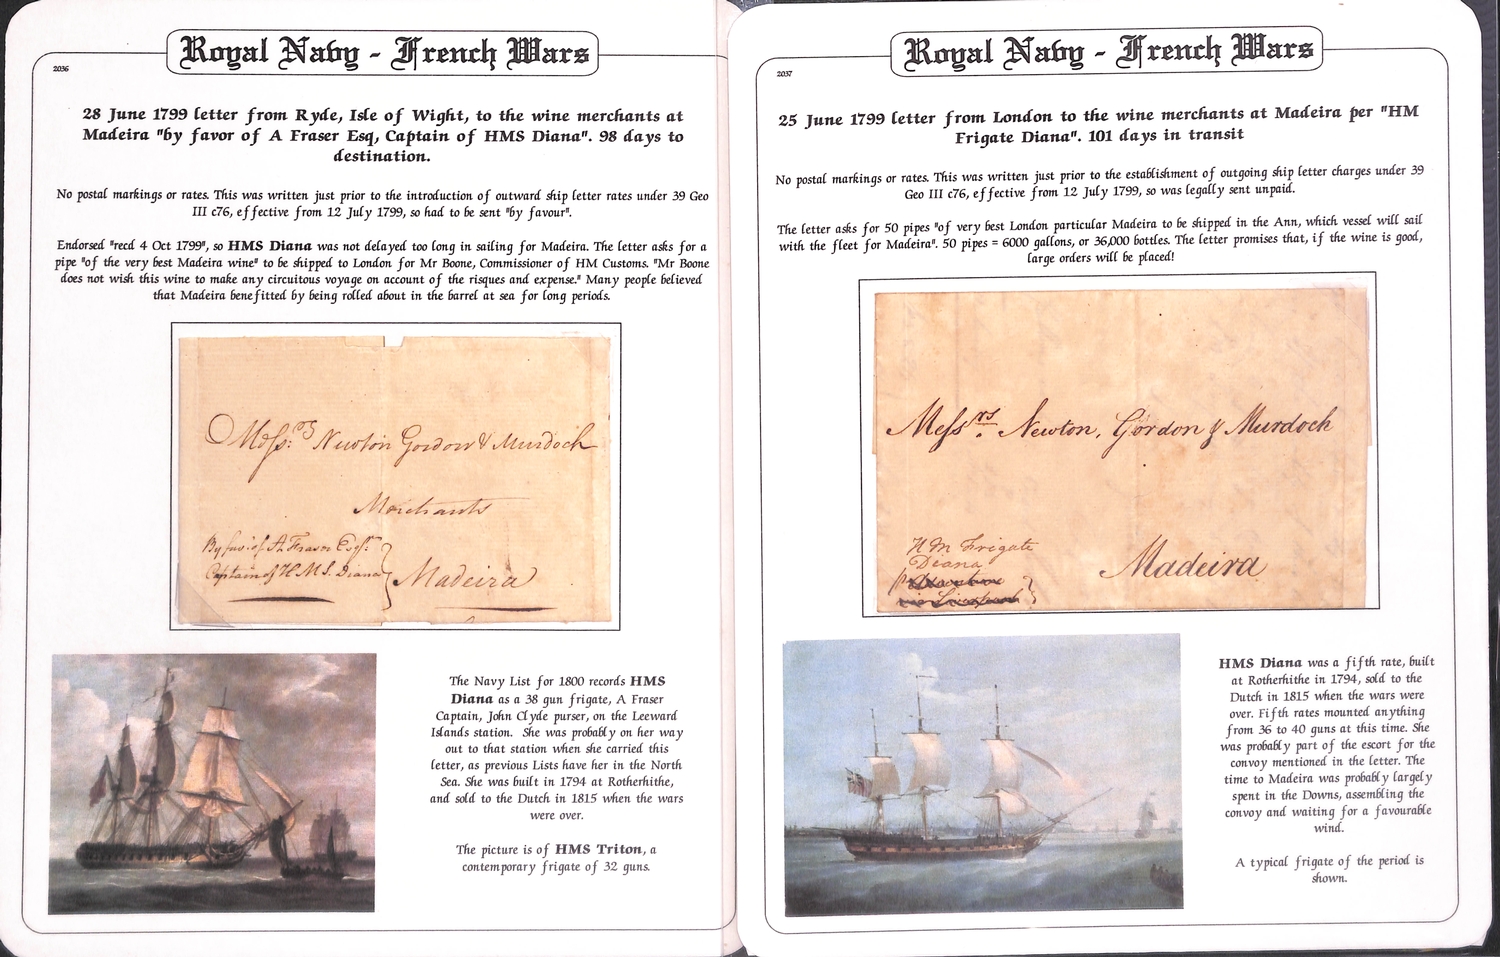 Royal Navy - French Wars
2036
28 June 1799 letter from Ryde, Isle of Wight, to the wine merchants at
Madeira "by favor of A Fraser Esq, Captain of HMS Diana". 98 days to
destination.
No postal markings or rates. This was written just prior to the introduction of outward ship letter rates under 39 Geo
III c76, effective from 12 July 1799, so had to be sent "by favour".
Endorsed "recd 4 Oct 1799", so HMS Diana was not delayed too long in sailing for Madeira. The letter asks for a
pipe "of the very best Madeira wine" to be shipped to London for Mr Boone, Commissioner of HM Customs. "Mr Boone
does not wish this wine to make any circuitous voyage on account of the risques and expense." Many people believed
that Madeira benefitted by being rolled about in the barrel at sea for long periods.
Messrs Newton Gordon & Murdoch
Merchants
By fav. of A Fraser Esqr.
Captain of H M S. Diana
Madeira
The Navy List for 1800 records HMS
Diana as a 38 gun frigate, A Fraser
Captain, John Clyde purser, on the Leeward
Islands station. She was probably on her way
out to that station when she carried this
letter, as previous Lists have her in the North
Sea. She was built in 1794 at Rotherhithe,
and sold to the Dutch in 1815 when the wars
were over.
The picture is of HMS Triton, a
contemporary frigate of 32 guns.
Royal Navy - French Wars
2037
25 June 1799 letter from London to the wine merchants at Madeira per "HM
Frigate Diana". 101 days in transit
No postal markings or rates. This was written just prior to the establishment of outgoing ship letter charges under 39
Geo III c76, effective from 12 July 1799, so was legally sent unpaid.
The letter asks for 50 pipes "of very best London particular Madeira to be shipped in the Ann, which vessel will sail
with the fleet for Madeira". 50 pipes = 6000 gallons, or 36,000 bottles. The letter promises that, if the wine is good,
large orders will be placed!
Messrs. Newton, Gordon & Murdoch
H M Frigate
Diana
Madeira
HMS Diana was a fifth rate, built
at Rotherhithe in 1794, sold to the
Dutch in 1815 when the wars were
over. Fifth rates mounted anything
from 36 to 40 guns at this time. She
was probably part of the escort for the
convoy mentioned in the letter. The
time to Madeira was probably largely
spent in the Downs, assembling the
convoy and waiting for a favourable
wind.
A typical frigate of the period is
shown.